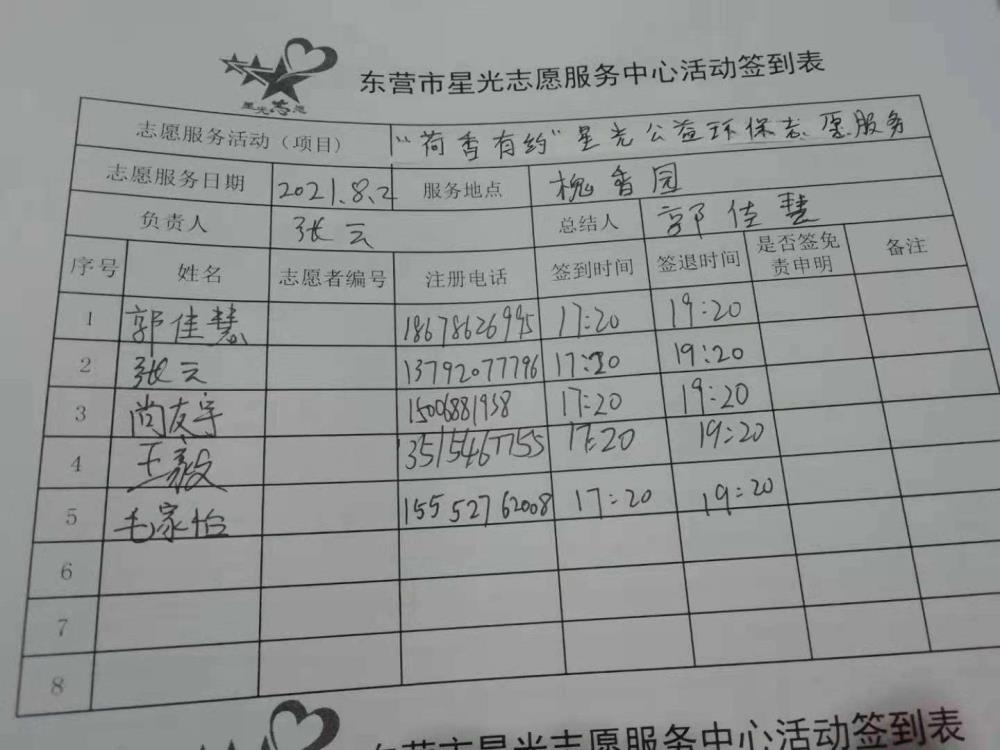 东营市星光志愿服务中心活动签到表
星光志愿
志愿服务活动（项目） “荷香有约”星光公益环保志愿服务
志愿服务日期 2021.8.2 服务地点 槐香园
负责人 张云 总结人 郭佳慧
序号 姓名 志愿者编号 注册电话 签到时间 签退时间 是否签免责申明 备注
1 郭佳慧 18678626995 17:20 19:20
2 张云 13792077796 17:20 19:20
3 尚友宇 15006881938 17:20 19:20
4 王毅 13515467755 17:20 19:20
5 毛家怡 15552762008 17:20 19:20
6
7
8
东营市星光志愿服务中心活动签到表